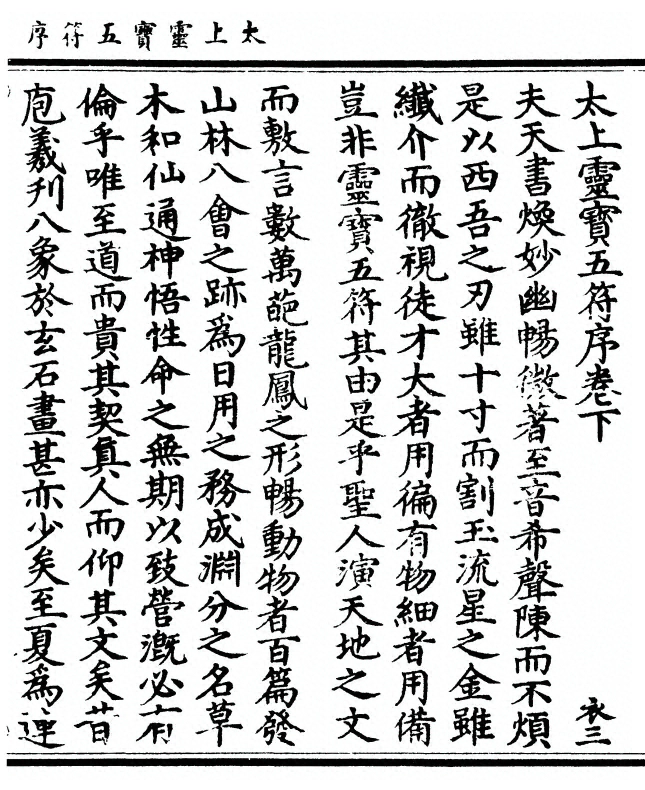 太上靈寶五符序
太上靈寶五符序卷下
衣三
夫天書煥妙幽暢微著至音希聲陳而不煩
是以西吾之刃雖十寸而割玉流星之金雖
纎介而徹視徒才大者用徧有物細者用備
豈非靈寶五符其由是乎聖人演天地之文
而敷言數萬葩龍鳳之形暢動物者百篇發
山林八會之跡爲日用之務成淵分之名草
木和仙通神悟性命之無期以致營溉必有
倫乎唯至道而貴其契真人而仰其文矣昔
庖羲刋八象於玄石畫甚亦少矣至夏爲連